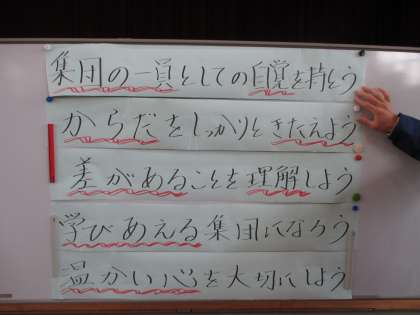 集団の一員としての自覚を持とう
からだをしっかりときたえよう
差があることを理解しよう
学びあえる集団になろう
温かい心を大切にしよう